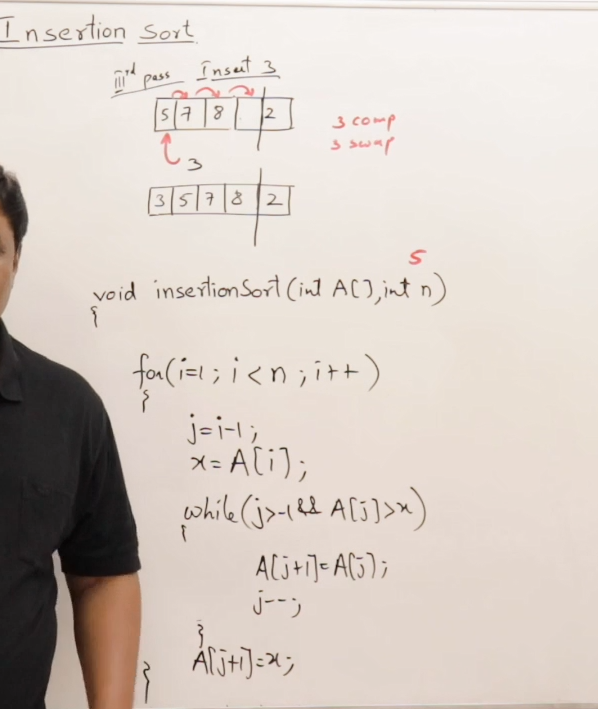 Insertion Sort
IIIrd pass Insert 3
5 7 8 2
3 comp
3 swap
3
3 5 7 8 2
5
void insertionSort(int A[], int n)
{
for(i=1; i<n; i++)
{
j=i-1;
x=A[i];
while(j>-1 && A[j]>x)
{
A[j+1]=A[j];
j--;
}
A[j+1]=x;
}